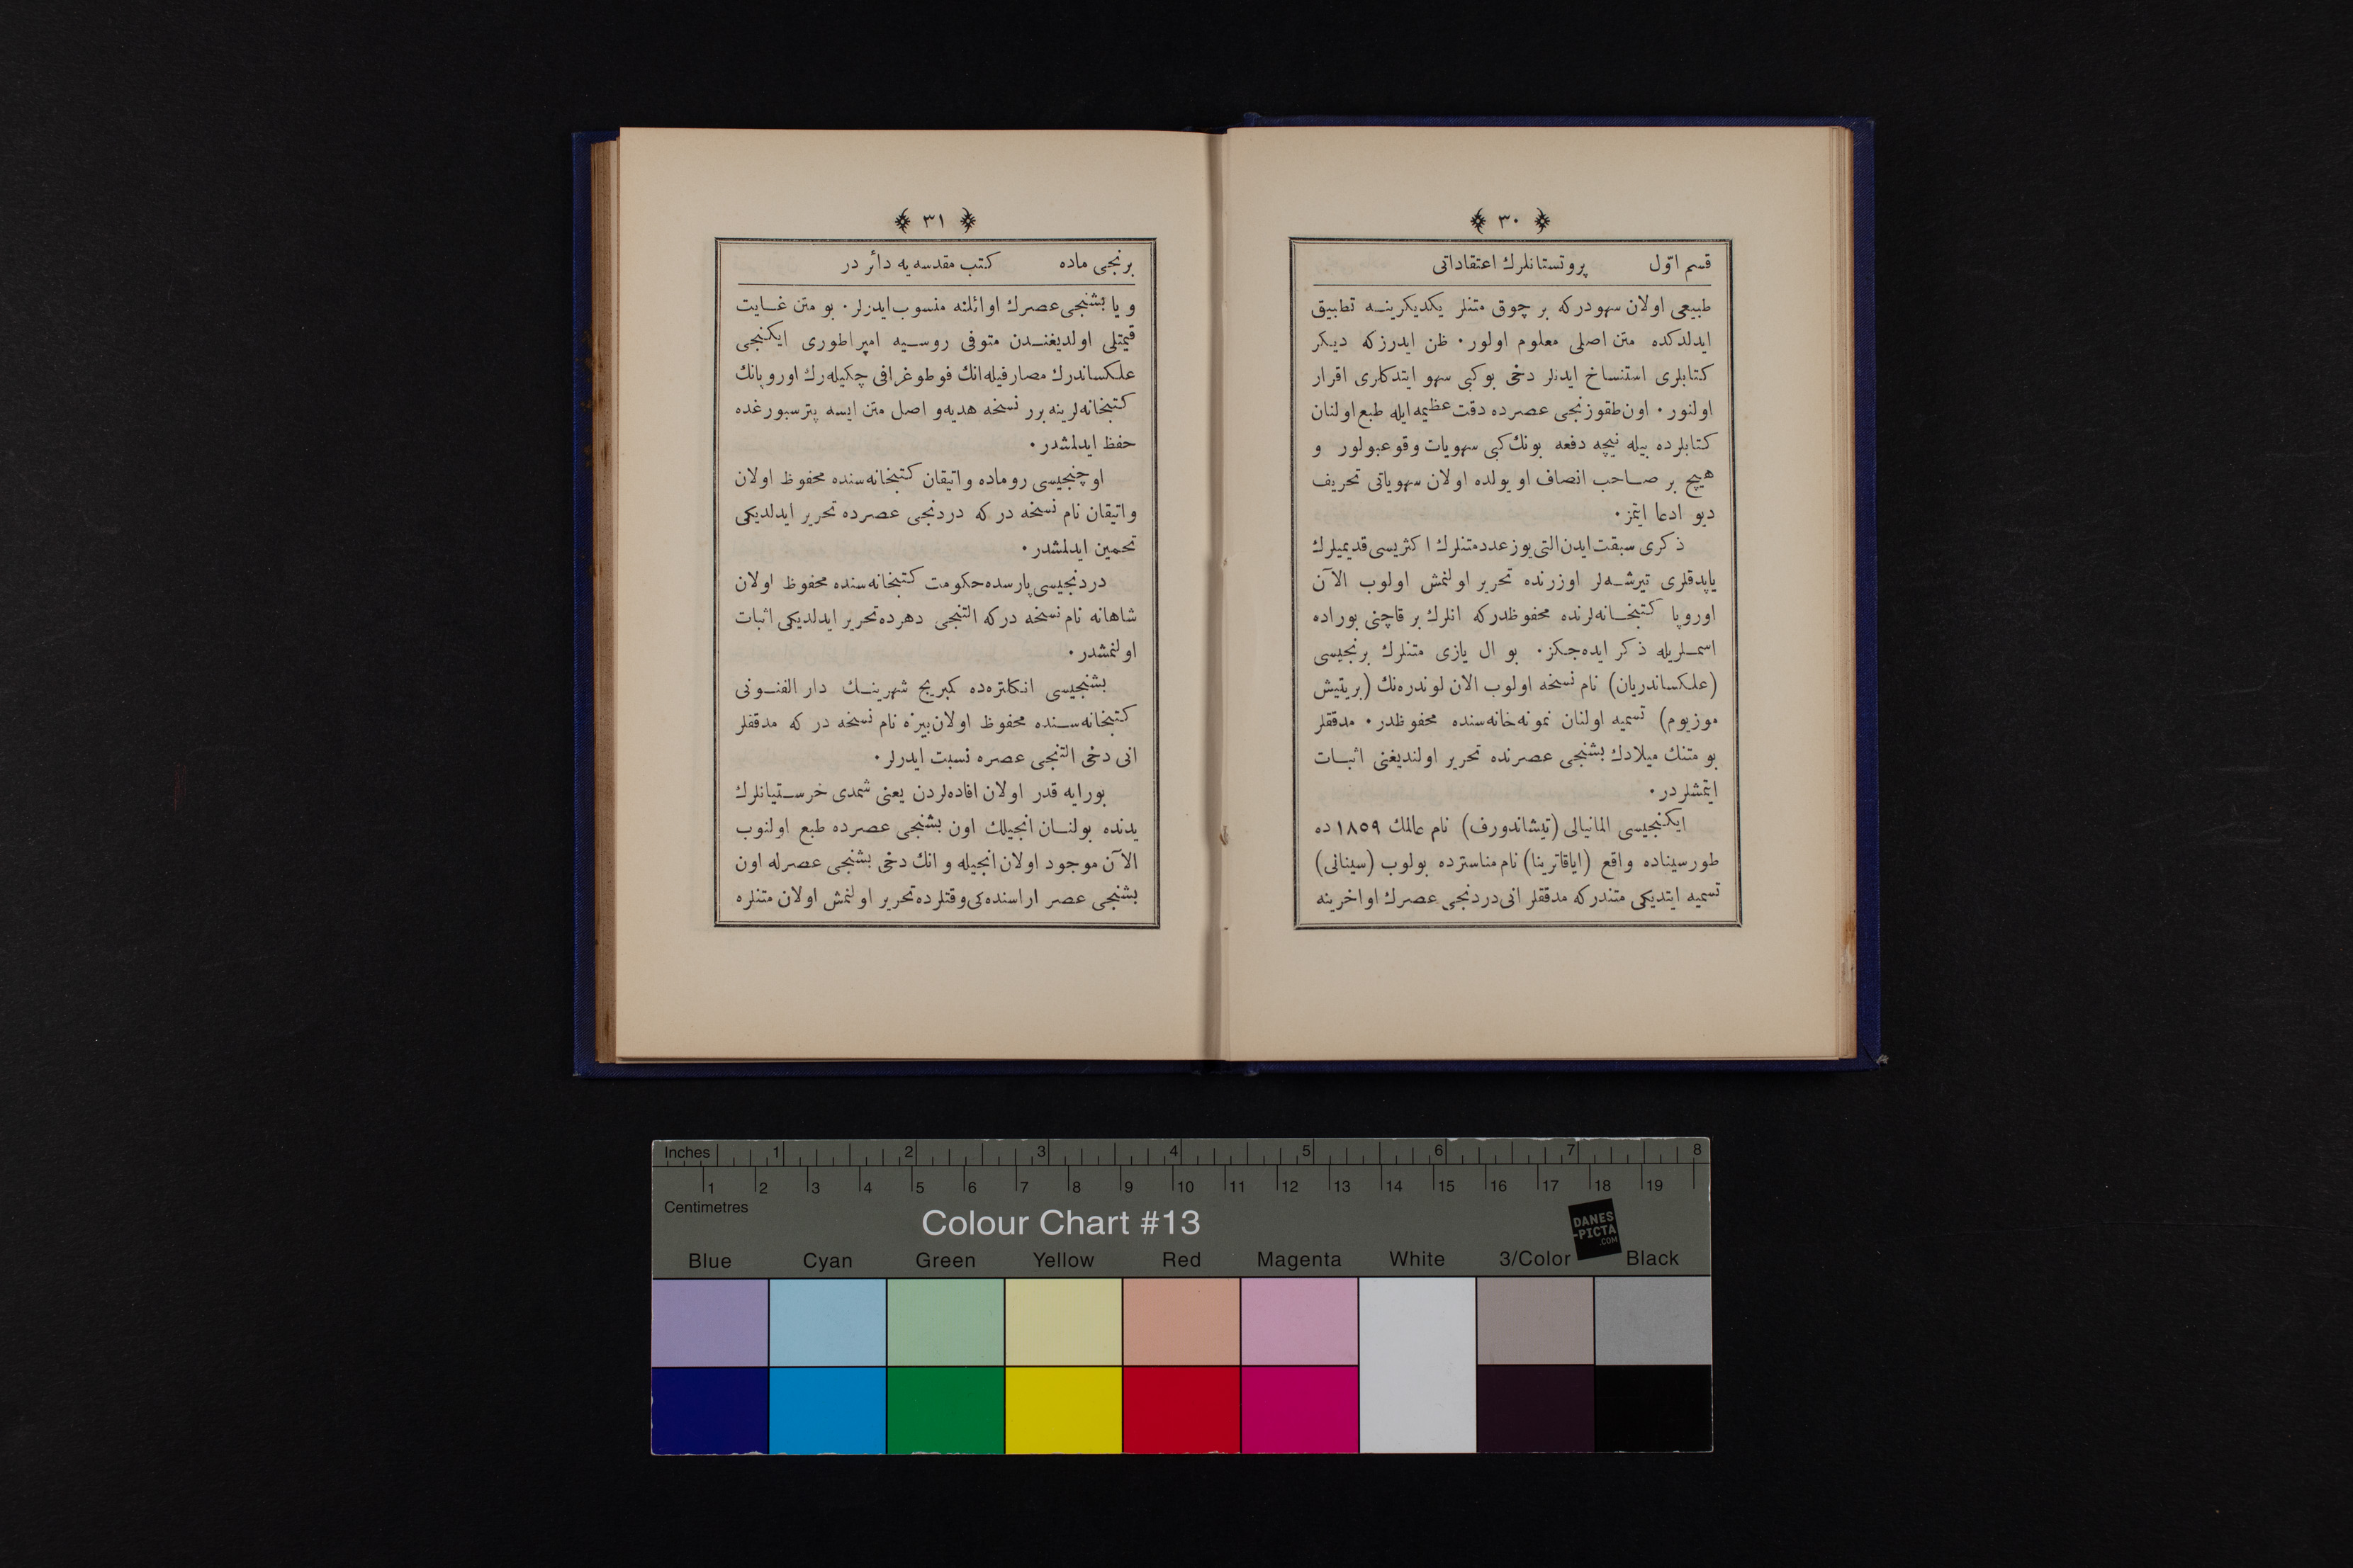 ﴿ ٣٠ ﴾
قسم اوّل پروتستانلرك اعتقاداتی
طبیعی اولان سهودركه بر چوق متنلر یكدیكرینه تطبیق
ایدلدكده متن اصلی معلوم اولور. ظن ایدرزكه دیكر
كتابلری استنساخ ایدنلر دخی بوكبی سهو ایتدكلری اقرار
اولنور. اون طقوزنجی عصرده دقت عظیمه ایله طبع اولنان
كتابلرده بیله نیچه دفعه بونك كبی سهویات وقوعبولور و
هیچ بر صاحب انصاف او یولده اولان سهویاتی تحریف
دیو ادعا ایتمز.
ذكری سبقت ایدن التی یوز عدد متنلرك اكثریسی قدیمیلرك
یاپدقلری تیرشه‌لر اوزرنده تحریر اولنمش اولوب الآن
اوروپا كتبخانه‌لرنده محفوظدركه انلرك بر قاچنی بوراده
اسملریله ذكر ایده‌جكز. بو ال یازی متنلرك برنجیسی
(علكساندریان) نام نسخه اولوب الان لوندره‌نك (بریتیش
موزیوم) تسمیه اولنان نمونه‌خانه‌سنده محفوظدر. مدققلر
بو متنك میلادك بشنجی عصرنده تحریر اولندیغنی اثبات
ایتمشلردر.
ایكنجیسی المانیالی (تیشاندورف) نام عالمك ١٨٥٩ ده
طورسیناده واقع (ایاقاترینا) نام مناسترده بولوب (سینائی)
تسمیه ایتدیكی متندركه مدققلر انی دردنجی عصرك اواخرینه
﴿ ٣١ ﴾
برنجی ماده كتب مقدسه‌یه دائر در
و یا بشنجی عصرك اوائلنه منسوب ایدرلر. بو متن غایت
قیمتلی اولدیغندن متوفی روسیه امپراطوری ایكنجی
علكساندرك مصارفیله انك فوطوغرافی چكیله‌رك اوروپانك
كتبخانه‌لرینه برر نسخه هدیه و اصل متن ایسه پترسبورغده
حفظ ایدلمشدر.
اوچنجیسی روماده واتیقان كتبخانه‌سنده محفوظ اولان
واتیقان نام نسخه در كه دردنجی عصرده تحریر ایدلدیكی
تخمین ایدلمشدر.
دردنجیسی پارسده حكومت كتبخانه‌سنده محفوظ اولان
شاهانه نام نسخه دركه التنجی دهرده تحریر ایدلدیكی اثبات
اولنمشدر.
بشنجیسی انكلتره‌ده كمبریج شهرینك دار الفنونی
كتبخانه‌سنده محفوظ اولان بیزه نام نسخه در كه مدققلر
انی دخی التنجی عصره نسبت ایدرلر.
بورایه قدر اولان افاده‌لردن یعنی شمدی خرستیانلرك
یدنده بولنان انجیلك اون بشنجی عصرده طبع اولنوب
الآن موجود اولان انجیله و انك دخی بشنجی عصرله اون
بشنجی عصر اراسنده‌كی وقتلرده تحریر اولنمش اولان متنلره
Inches 1 2 3 4 5 6 7 8
1 2 3 4 5 6 7 8 9 10 11 12 13 14 15 16 17 18 19
Centimetres
Colour Chart #13
DANES
-PICTA
.COM
Blue Cyan Green Yellow Red Magenta White 3/Color Black